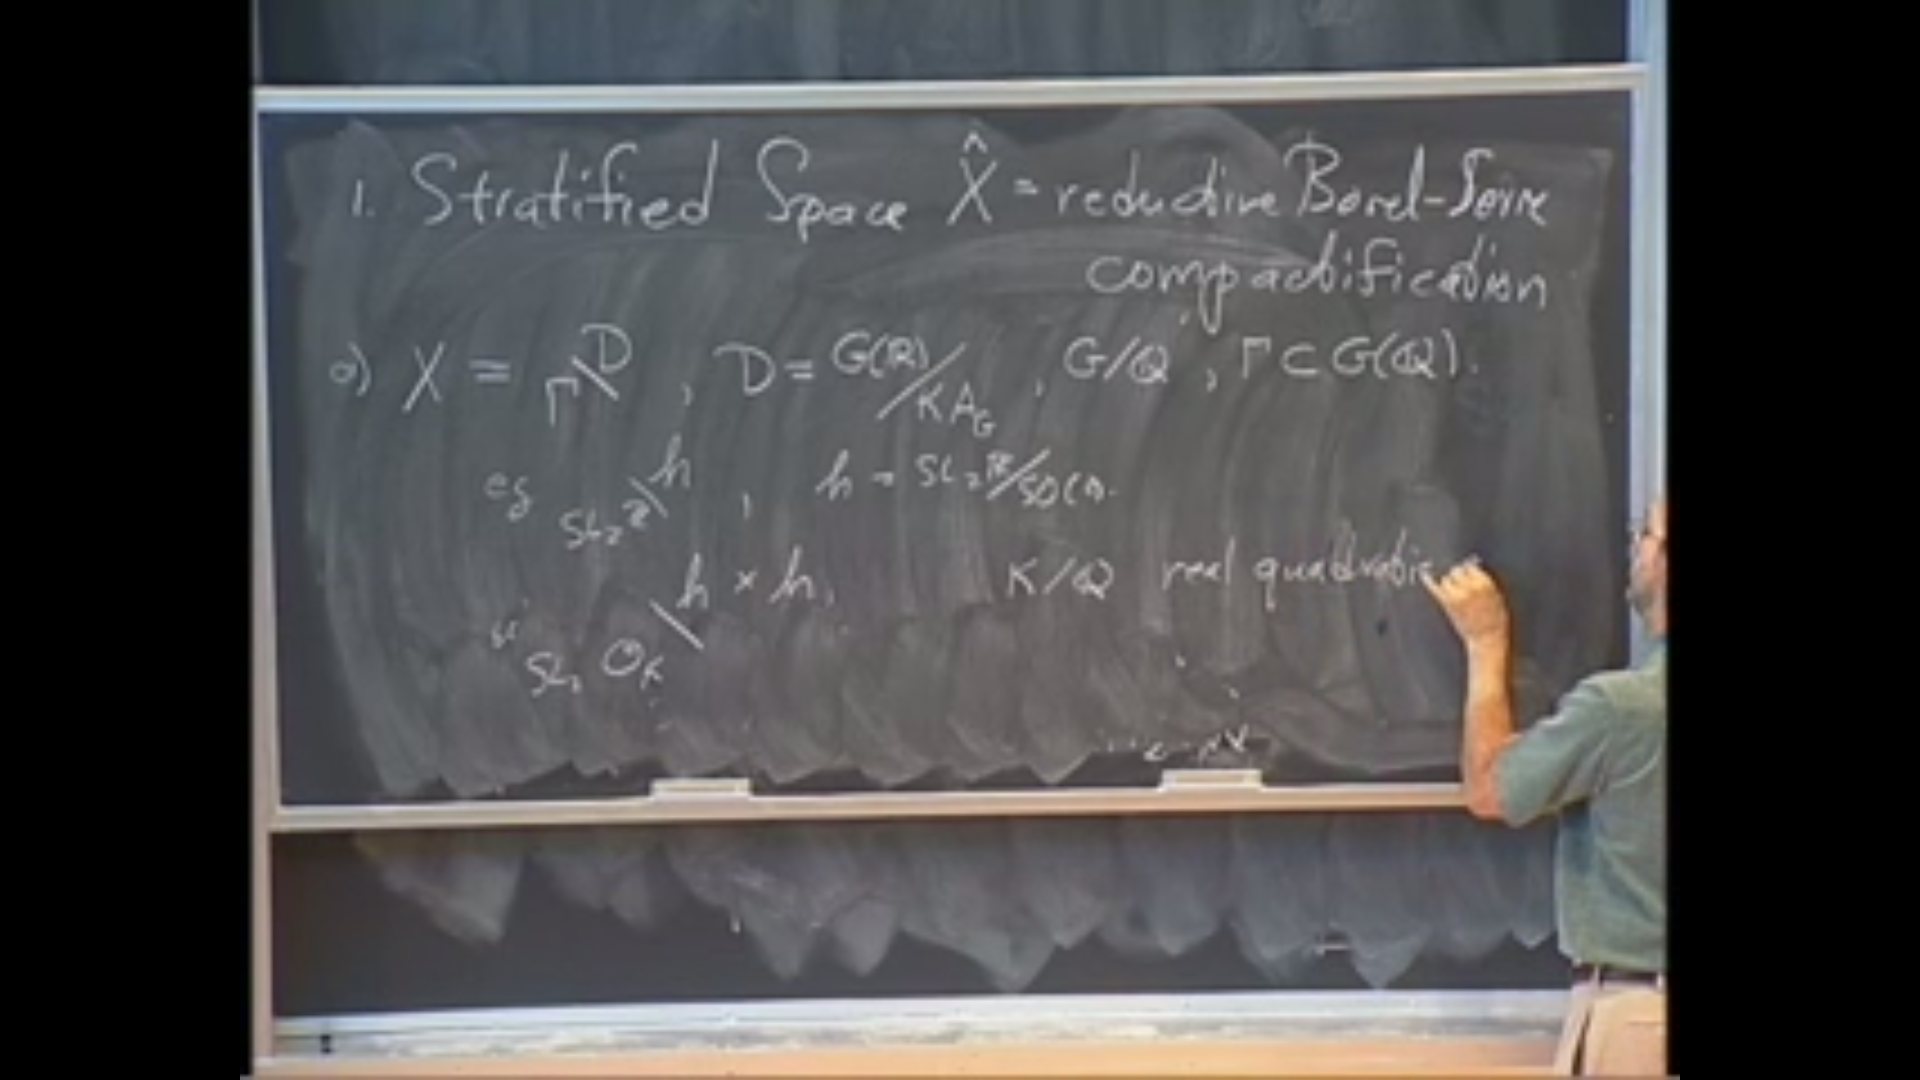 1. Stratified Space X̂ = reductive Borel-Serre
compactification
a) X = Γ\D , D = G(ℝ)/KA_G , G/ℚ , Γ ⊂ G(ℚ).
eg SL₂ℤ\h , h = SL₂ℝ/SO(2).
SL₂ O_K\h × h, K/ℚ real quadratic